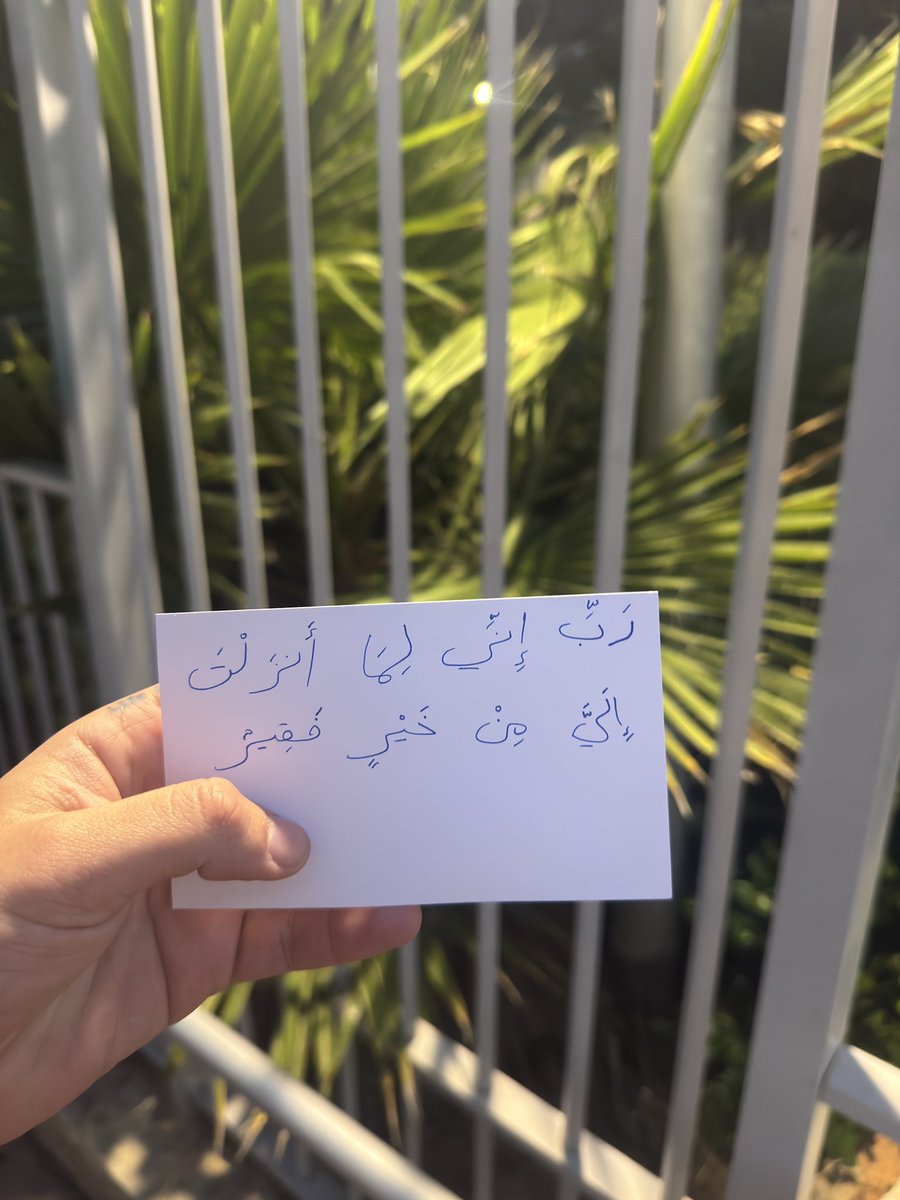 رَبِّ إِنِّي لِمَا أَنزَلْتَ
إِلَيَّ مِنْ خَيْرٍ فَقِيرٌ